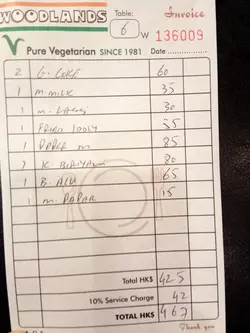 WOODLANDS
Table: 6
Invoice
W 136009
Pure Vegetarian SINCE 1981 Date
2 G. COKE 60
1 M. MILK 35
1 M. LASSI 30
1 FRIED IDDLY 55
1 PAPER M 85
1 K. BIRIYANI 80
1 B. ALU 65
1 M. PAPAR 15
Total HK$ 425
10% Service Charge 42
TOTAL HK$ 467
Thank you